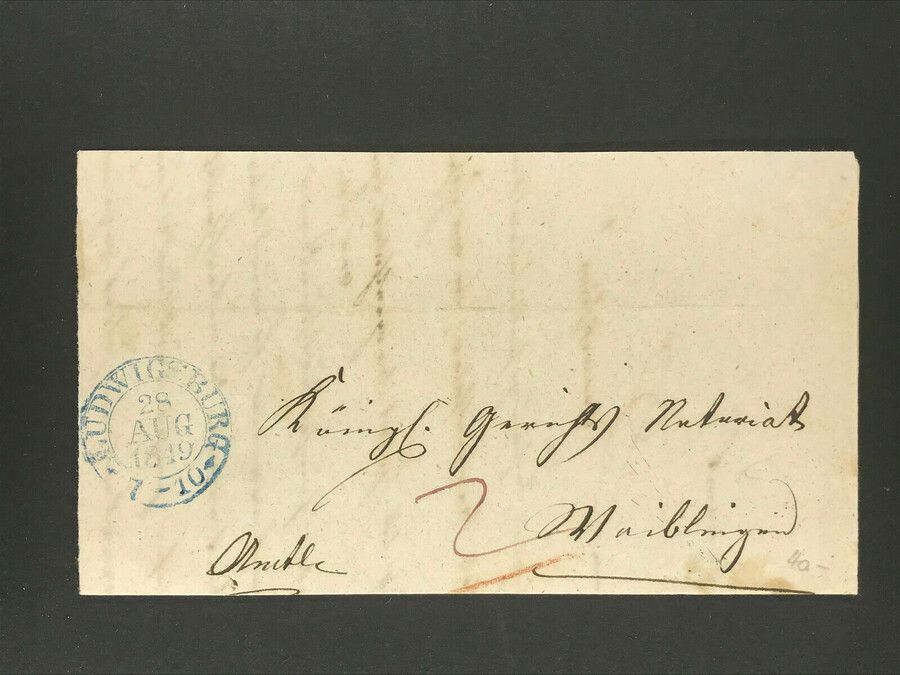 LUDWIGSBURG
28
AUG
1849
7-10
Königl. Gerichts Notariat
2
Waiblingen
Amtle
40-